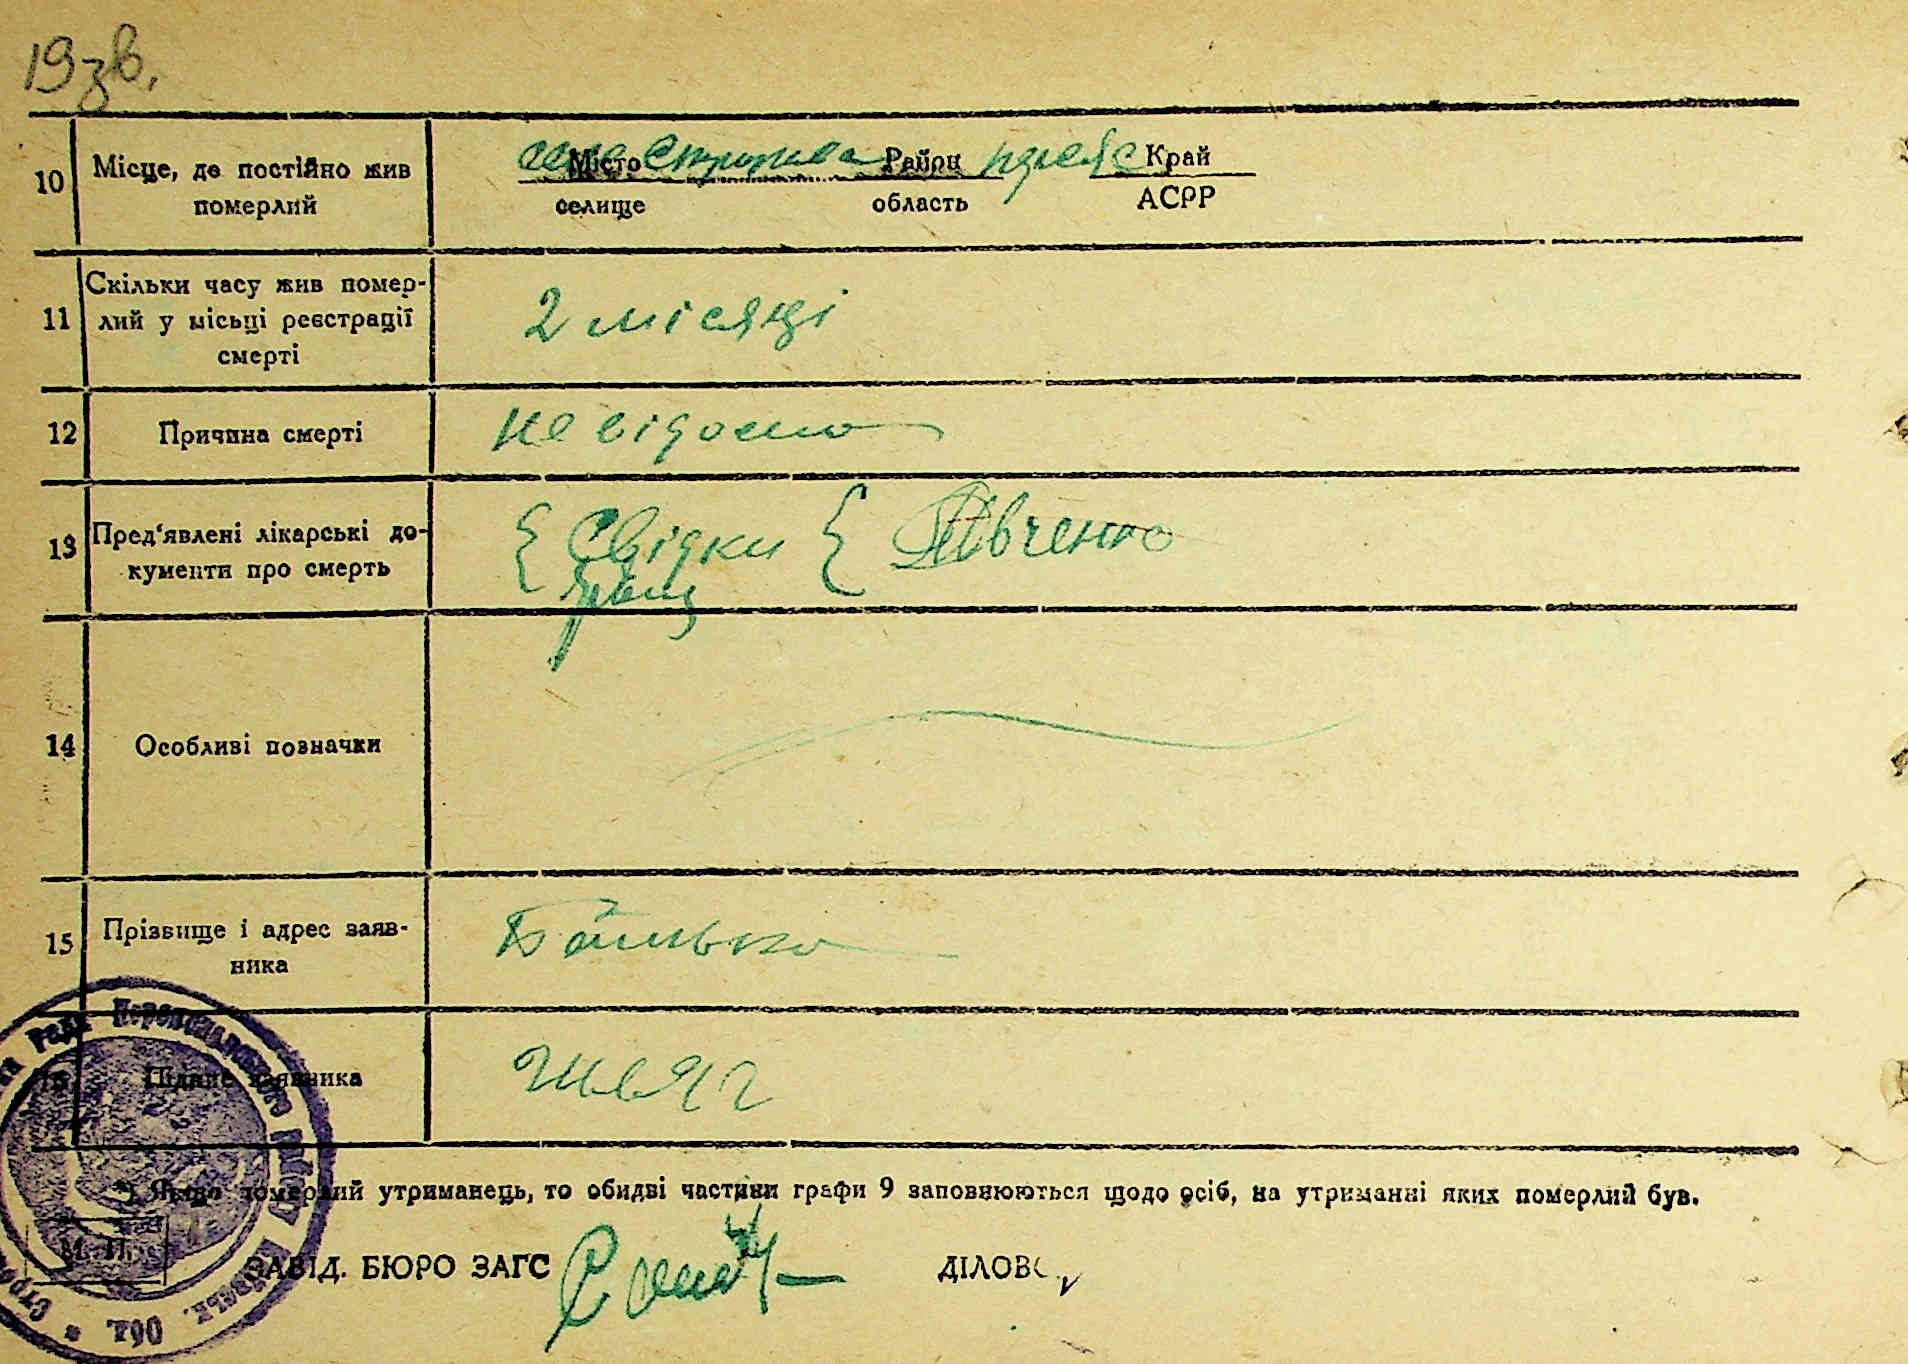 19 зв.
10 Місце, де постійно жив померлий
село Місто Строкова Район переяс Край
селище область АСРР
11 Скільки часу жив помер-
лий у місьці реєстрації
смерті
2 місяці
12 Причина смерті
не відомо
13 Пред'явлені лікарські до-
кументи про смерть
{ Свідки { Півченко
14 Особливі позначки
15 Прізвище і адрес заяв-
ника
Батько
16 Підпис заявника
*) Якщо померлий утриманець, то обидві частини графи 9 заповнюються щодо осіб, на утриманні яких померлий був.
М. П.
ЗАВІД. БЮРО ЗАГС
ДІЛОВ
Ради Переяславського Району Київськ. Обл. *